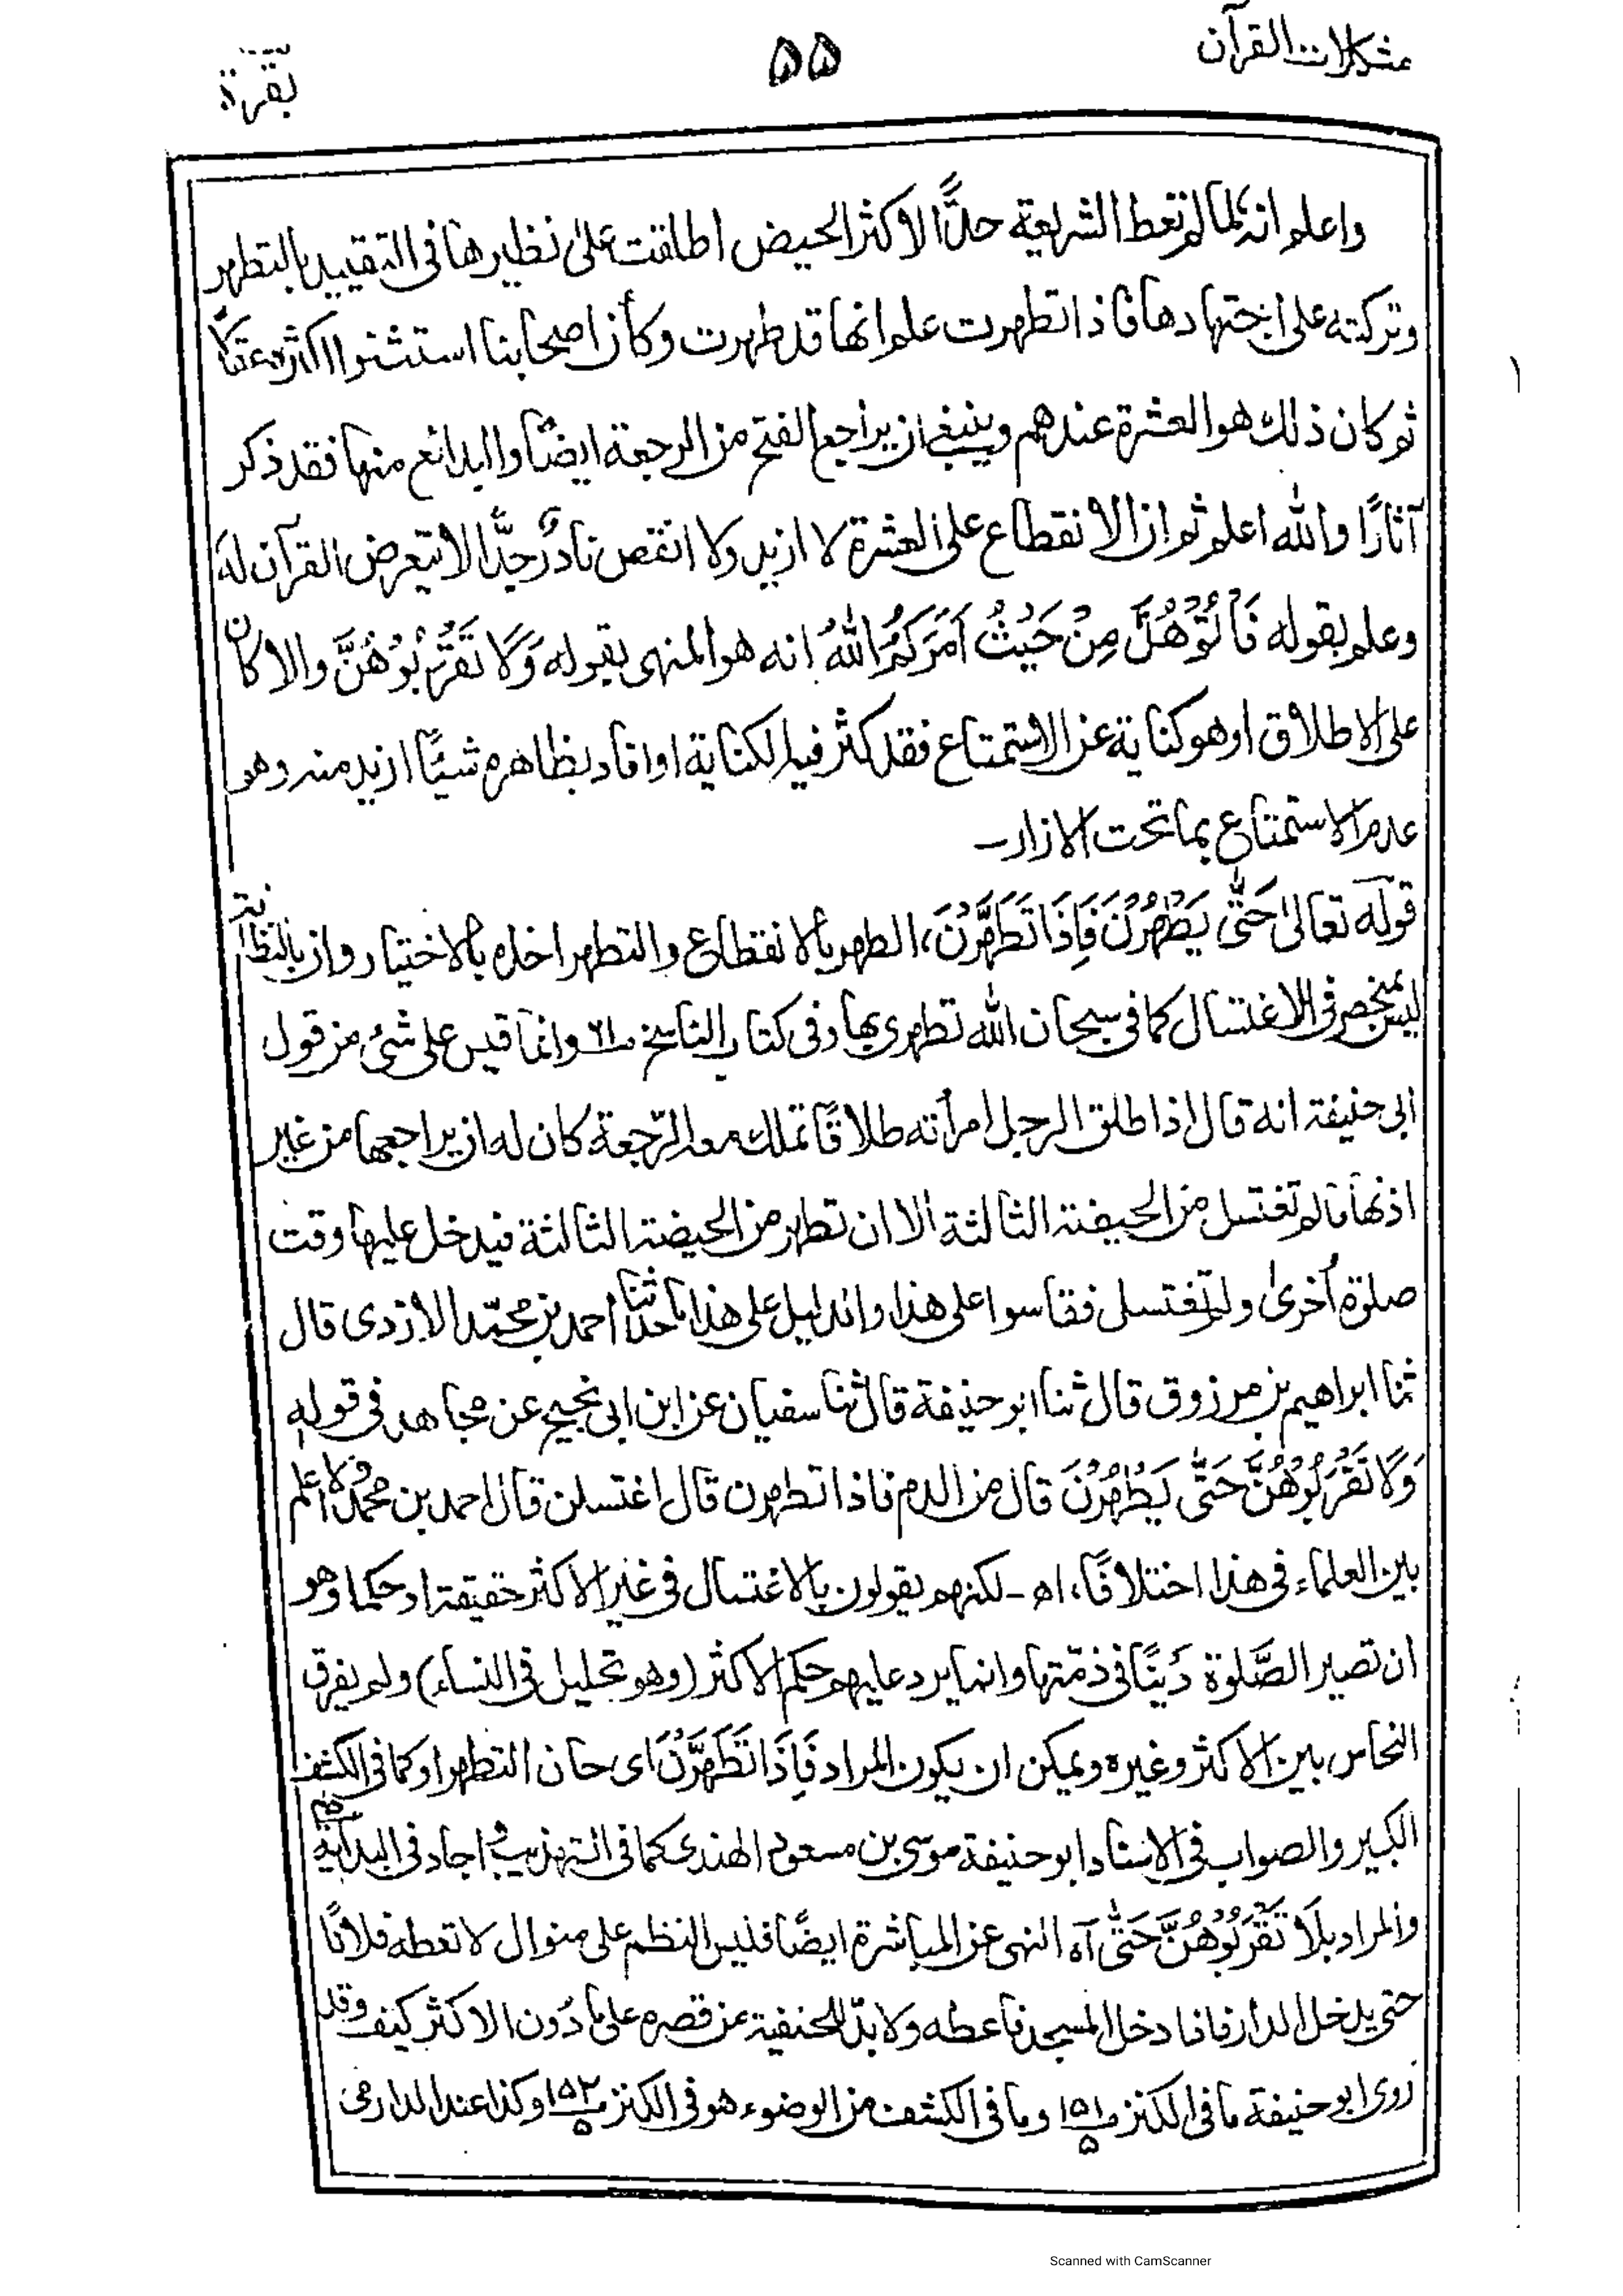 مشكلات القرآن
۵۵
بقرة
واعلم انه لما لم تعط الشريعة حدًّا لاكثر الحيض اطلقت على نظيرها فى التقييد بالتطهر
وتركته على اجتهادها فاذا تطهرت علم انها قد طهرت وكأن اصحابنا استثنوا اكثره عقلًا
ثم كان ذلك هو العشرة عندهم وينبغى ان يراجع الفتح من الرجعة ايضًا والبدائع منها فقد ذكر
آثارًا والله اعلم ثم ان الانقطاع على العشرة لا ازيد ولا انقص نادرٌ جدًّا لا يتعرض القرآن له
وعلم بقوله فَأْتُوْهُنَّ مِنْ حَيْثُ اَمَرَكُمُ اللهُ انه هو المنهى بقوله وَلَا تَقْرَبُوْهُنَّ والا كان
على الاطلاق او هو كناية عن الاستمتاع فقد كثر فيه الكناية او افاد بظاهره شيئًا ازيد منه وهو
عدم الاستمتاع بما تحت الازار ــ
قوله تعالىٰ حَتّٰى يَطْهُرْنَ فَاِذَا تَطَهَّرْنَ، الطهر بالانقطاع والتطهر اخذه بالاختيار وان بالنظافة
ليس بمنحصر فى الاغتسال كما فى سبحان الله تطهرى بها وفى كتاب الناسخ صـ۶۱ وانما قيس على شئ من قول
ابى حنيفة انه قال اذا طلق الرجل امرأته طلاقًا تملك معه الرّجعة كان له ان يراجعها من غير
اذنها مالم تغتسل من الحيضة الثالثة الا ان تطهر من الحيضة الثالثة فيدخل عليها وقت
صلوٰة اُخرىٰ ولم تغتسل فقاسوا على هذا والدليل على هذا ما حدثنا احمد بن محمّد الازدى قال
ثنا ابراهيم بن مرزوق قال ثنا ابو حذيفة قال ثنا سفيان عن ابن ابى نجيح عن مجاهد فى قوله
وَلَا تَقْرَبُوْهُنَّ حَتّٰى يَطْهُرْنَ قال من الدم فاذا تطهرن قال اغتسلن قال احمد بن محمد ولا اعلم
بين العلماء فى هذا اختلافًا، اه ــ لكنهم يقولون بالاغتسال فى غير الاكثر حقيقة او حكما وهو
ان تصير الصَّلوٰة دَينًا فى ذمّتها وانما يرد عليهم حكم الاكثر (وهو تحليل فى النساء) ولم يفرق
النحاس بين الاكثر وغيره ويمكن ان يكون المراد فَاِذَا تَطَهَّرْنَ اى حان التطهر او كما فى الكشف
الكبير والصواب فى الاسناد ابو حذيفة موسى بن مسعود النهدى كما فى التهذيب اجاد فى البداية
والمراد بلَا تَقْرَبُوْهُنَّ حَتّٰى آه النهى عن المباشرة ايضًا فليس النظم على منوال لا تعطه فلانًا
حتى يدخل الدار فاذا دخل المسجد فاعطه ولا بدّ للحنفية عن قصره على ما دُون الاكثر كيف وقد
روى ابو حنيفة ما فى الكنز صـ۱۵۱/۵ وما فى الكشف من الوضوء هو فى الكنز صـ۱۵۲/۵ وكذا عند الدارمى
Scanned with CamScanner